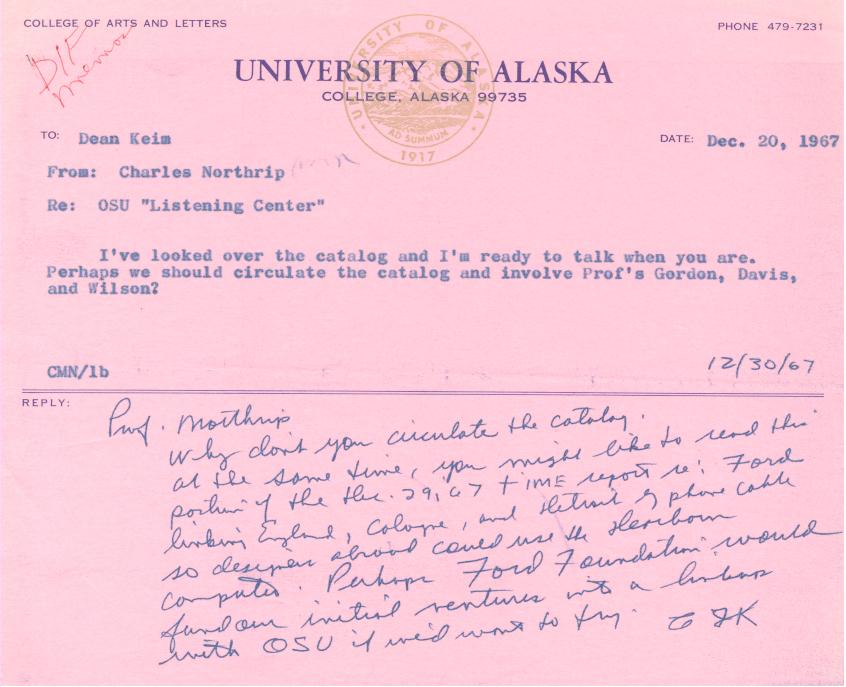 COLLEGE OF ARTS AND LETTERS
PHONE 479-7231
DIF
memos
UNIVERSITY OF ALASKA
COLLEGE, ALASKA 99735
UNIVERSITY OF ALASKA
AD SUMMUM
1917
TO: Dean Keim
DATE: Dec. 20, 1967
From: Charles Northrip
Re: OSU "Listening Center"
I've looked over the catalog and I'm ready to talk when you are.
Perhaps we should circulate the catalog and involve Prof's Gordon, Davis,
and Wilson?
CMN/lb
12/30/67
REPLY:
Prof. Northrip
Why don't you circulate the catalog.
at the same time, you might like to read this
portion of the Dec. 29, 67 TIME report re: Ford
linking England, Cologne, and Detroit by phone cable
so designers abroad could use the Dearborn
computer. Perhaps Ford Foundation would
fund our initial ventures into a linkup
with OSU if we'd want to try.
CJK